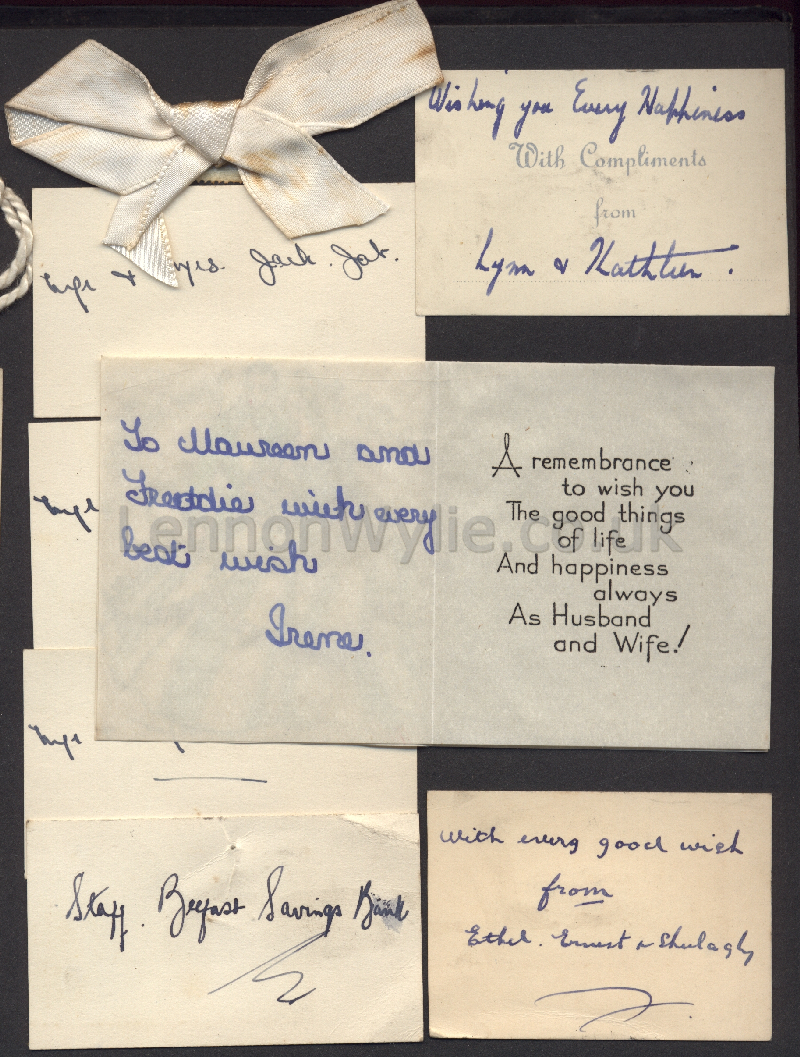 Wishing you Every Happiness
With Compliments
from
Lynn & Kathleen.
Jack.
To Maureen and
Freddie with every
best wish
Irene.
A remembrance
to wish you
The good things
of life
And happiness
always
As Husband
and Wife!
LennonWylie.co.uk
Staff. Belfast Savings Bank
With every good wish
from
Ethel. Ernest &